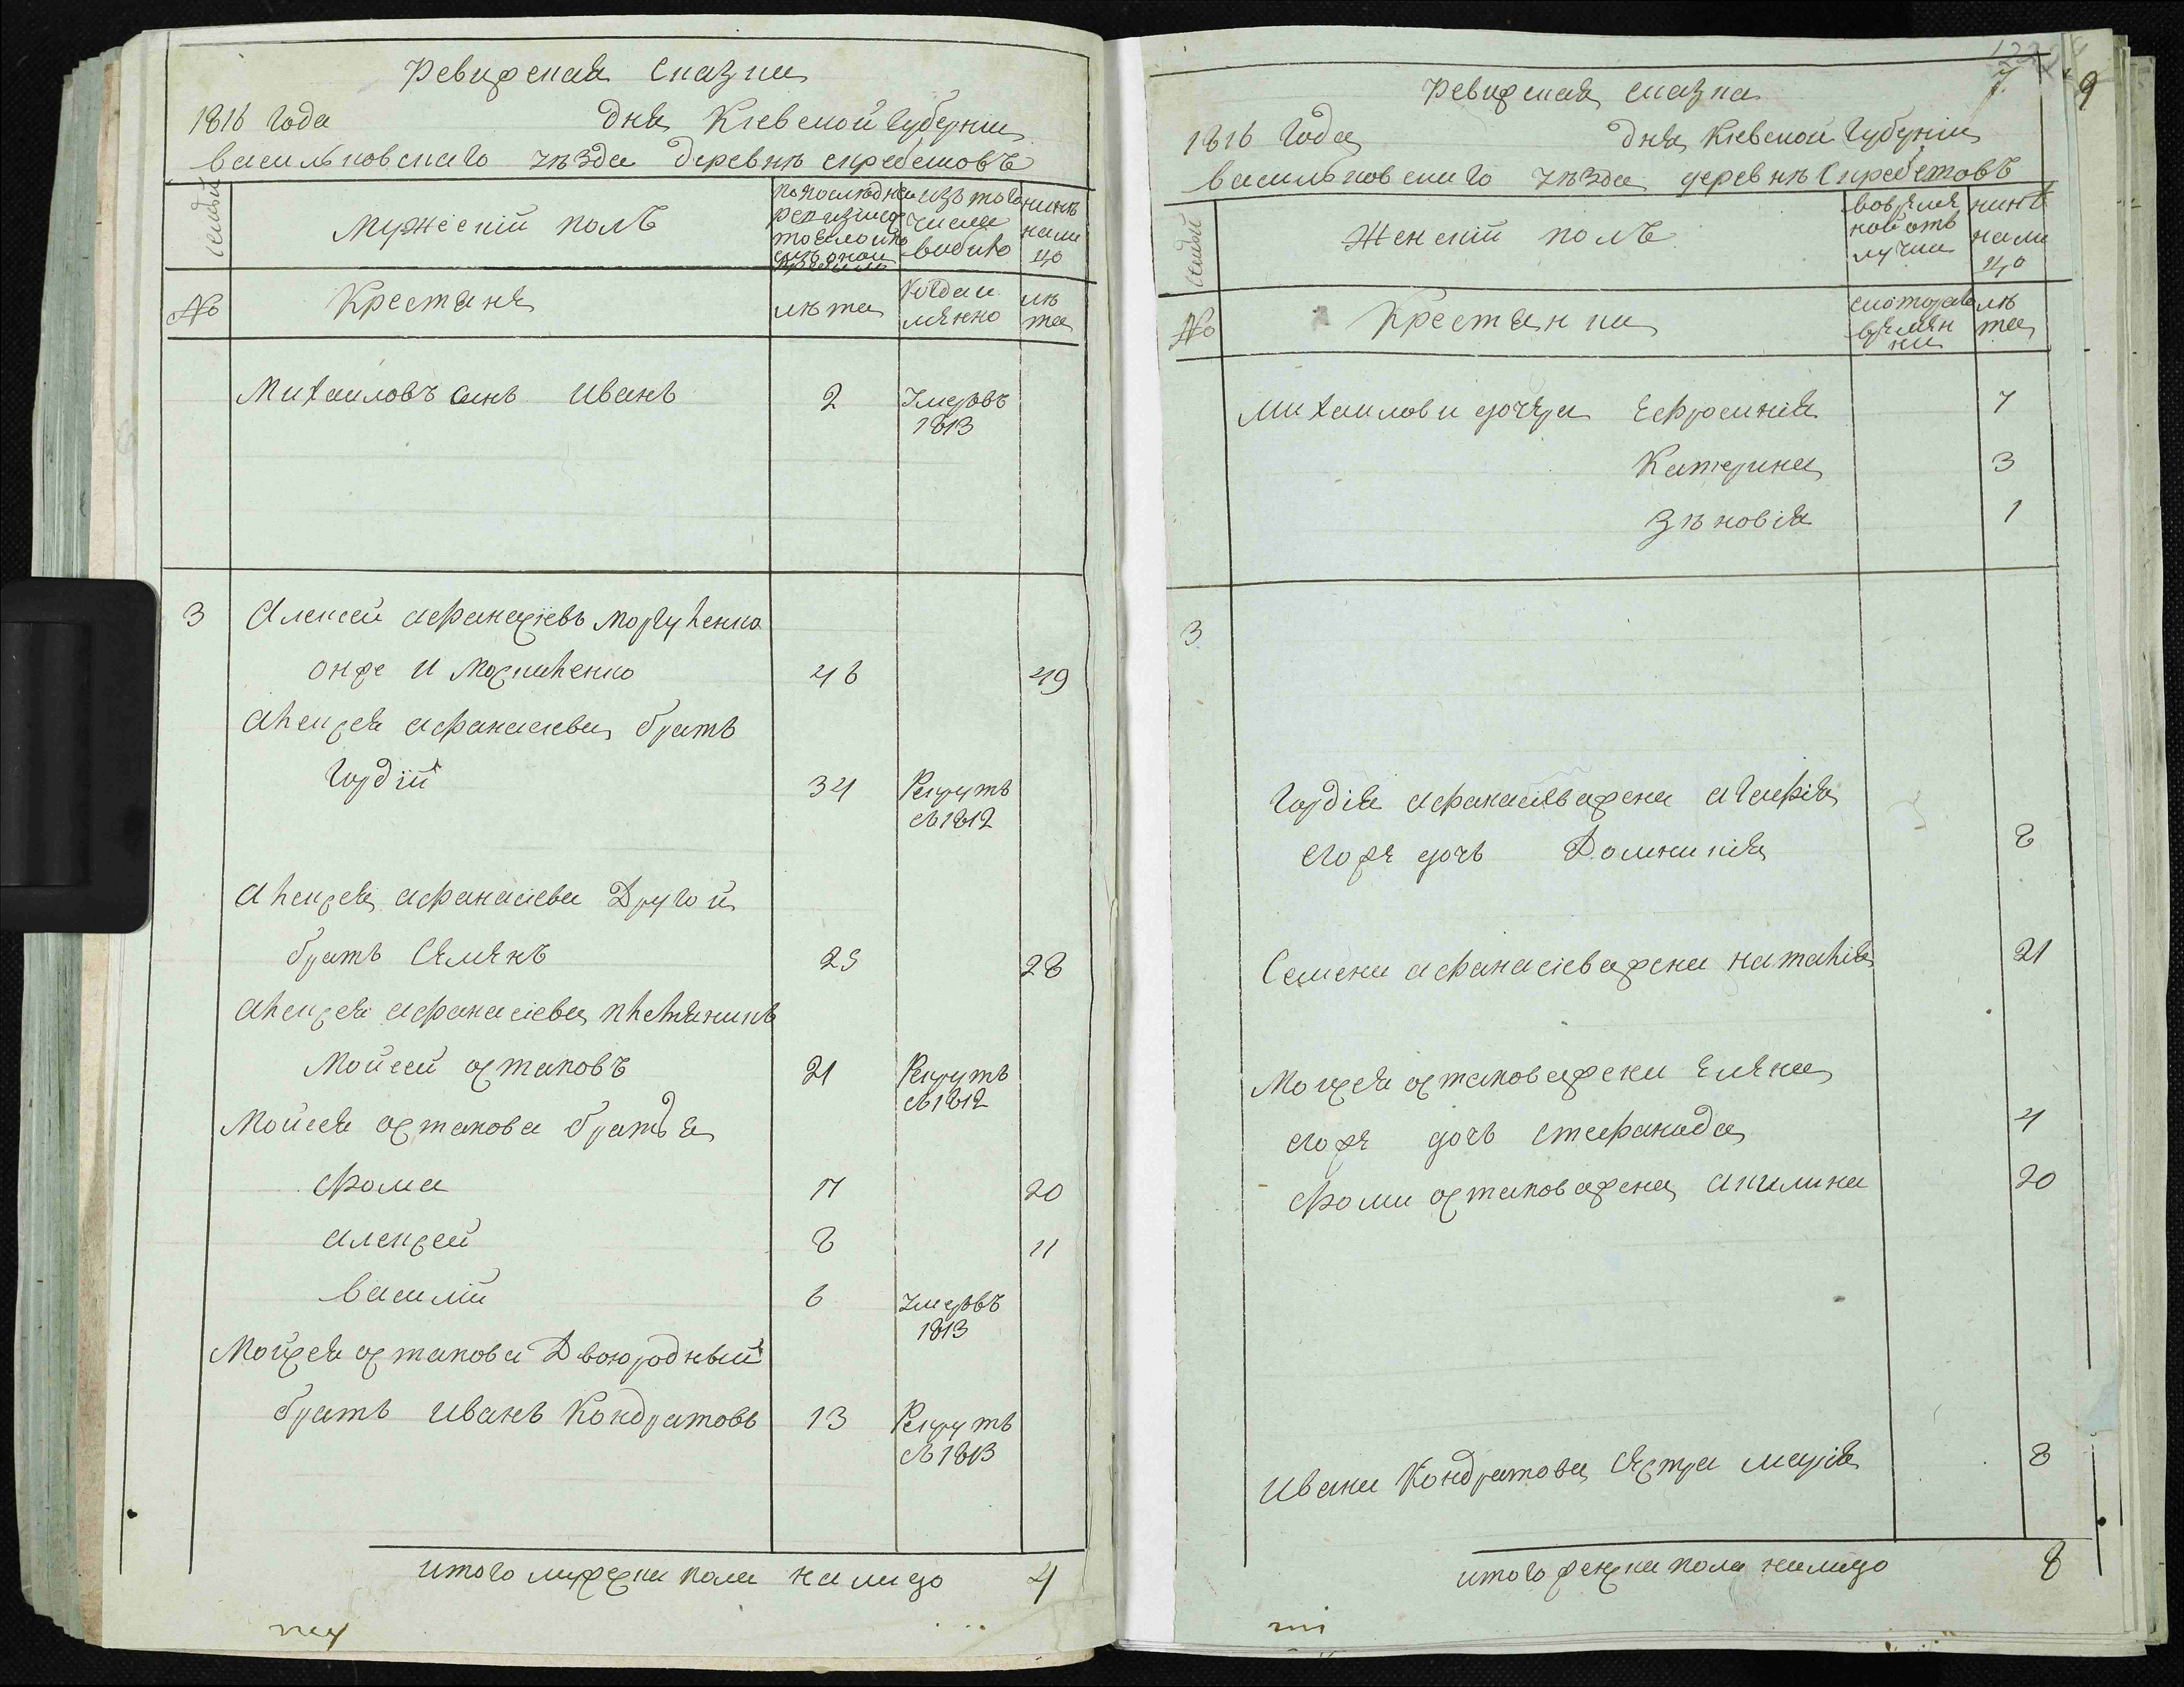 Ревизская Сказка
1816 года дня Киевской губернии
васильковского уѣзда деревни скребетовъ
семьи
Мужескій полъ
по последней ревизіи состояло и после оной прибыло
изъ того числа выбыло
нинѣ на лицо
№
Крестьяня
лѣта
Когда именно
лѣта
Михаиловъ синъ иванъ 2 Умеръ 1813
3 Алексей афанасіевъ Моргуненко
онже и Мосиненко 46 49
алексея афанасиева братъ
Гордій 34 Рекрутъ въ 1812
алексея афанасіева Другой
братъ Семенъ 25 28
алексея афанасіева племянникъ
Мойсей остаповъ 21 Рекрутъ въ 1812
Мойсея остапова братья
фома 17 20
алексей 8 11
василій 6 Умеръ 1813
Мойсея остапова Двоюродный
братъ иванъ Кондратовъ 13 Рекрутъ въ 1813
итого мужеска пола на лицо 4
7. 9
Ревизская сказка
1816 года дня Киевской губерніи
васильковского уѣзда деревнѣ Скребетовъ
семьи
Женскій полъ
во временной отлучки
нинѣ на лицо
№
Крестьянки
с которого времени
лѣта
михаилови дочери Ефросинія 7
Катерина 3
Зѣновія 1
3
Гордія афанасіева жена агафія
егоже дочь Домникія 8
Семена афанасіева жена наталія 21
Мойсея остапова жена Елена
егоже дочь стефанида 4
фоми остапова жена акилина 20
ивана Кондратова Сестра марія 8
итого женска пола налицо 8